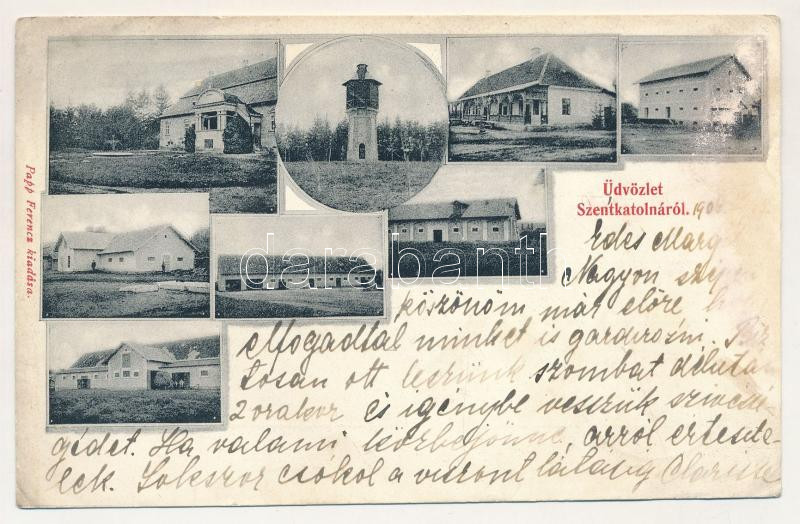 Papp Ferencz kiadása.
Üdvözlet
Szentkatolnáról. 190
Edes Marg
Nagyon
köszönöm már előre
elfogadtál minket is
tosan ott leszünk szombat délután
2 orakor és igénybe vesszük szivessé-
gédet. Ha valami közbejönne, arról értesite-
lek. Sokszor csókol a viszont látásig Clarisse
darabanth